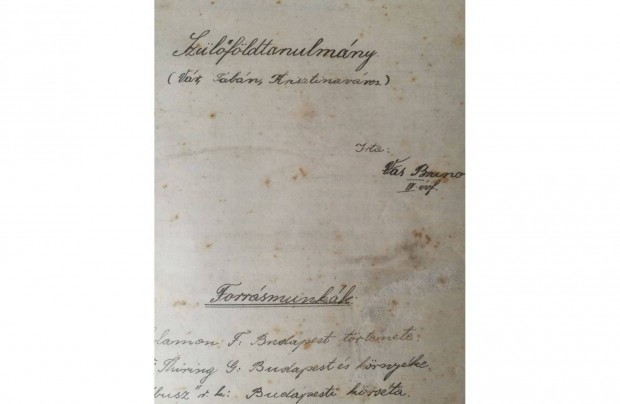 Szülőföldtanulmány
(Vár, Tabán, Krisztinaváros)
Irta:
Vás Bruno
II évf.
Forrásmunkák:
lamon F: Budapest története.
Thiring G: Budapest és környéke.
ibusz" r. k: Budapesti körséta.